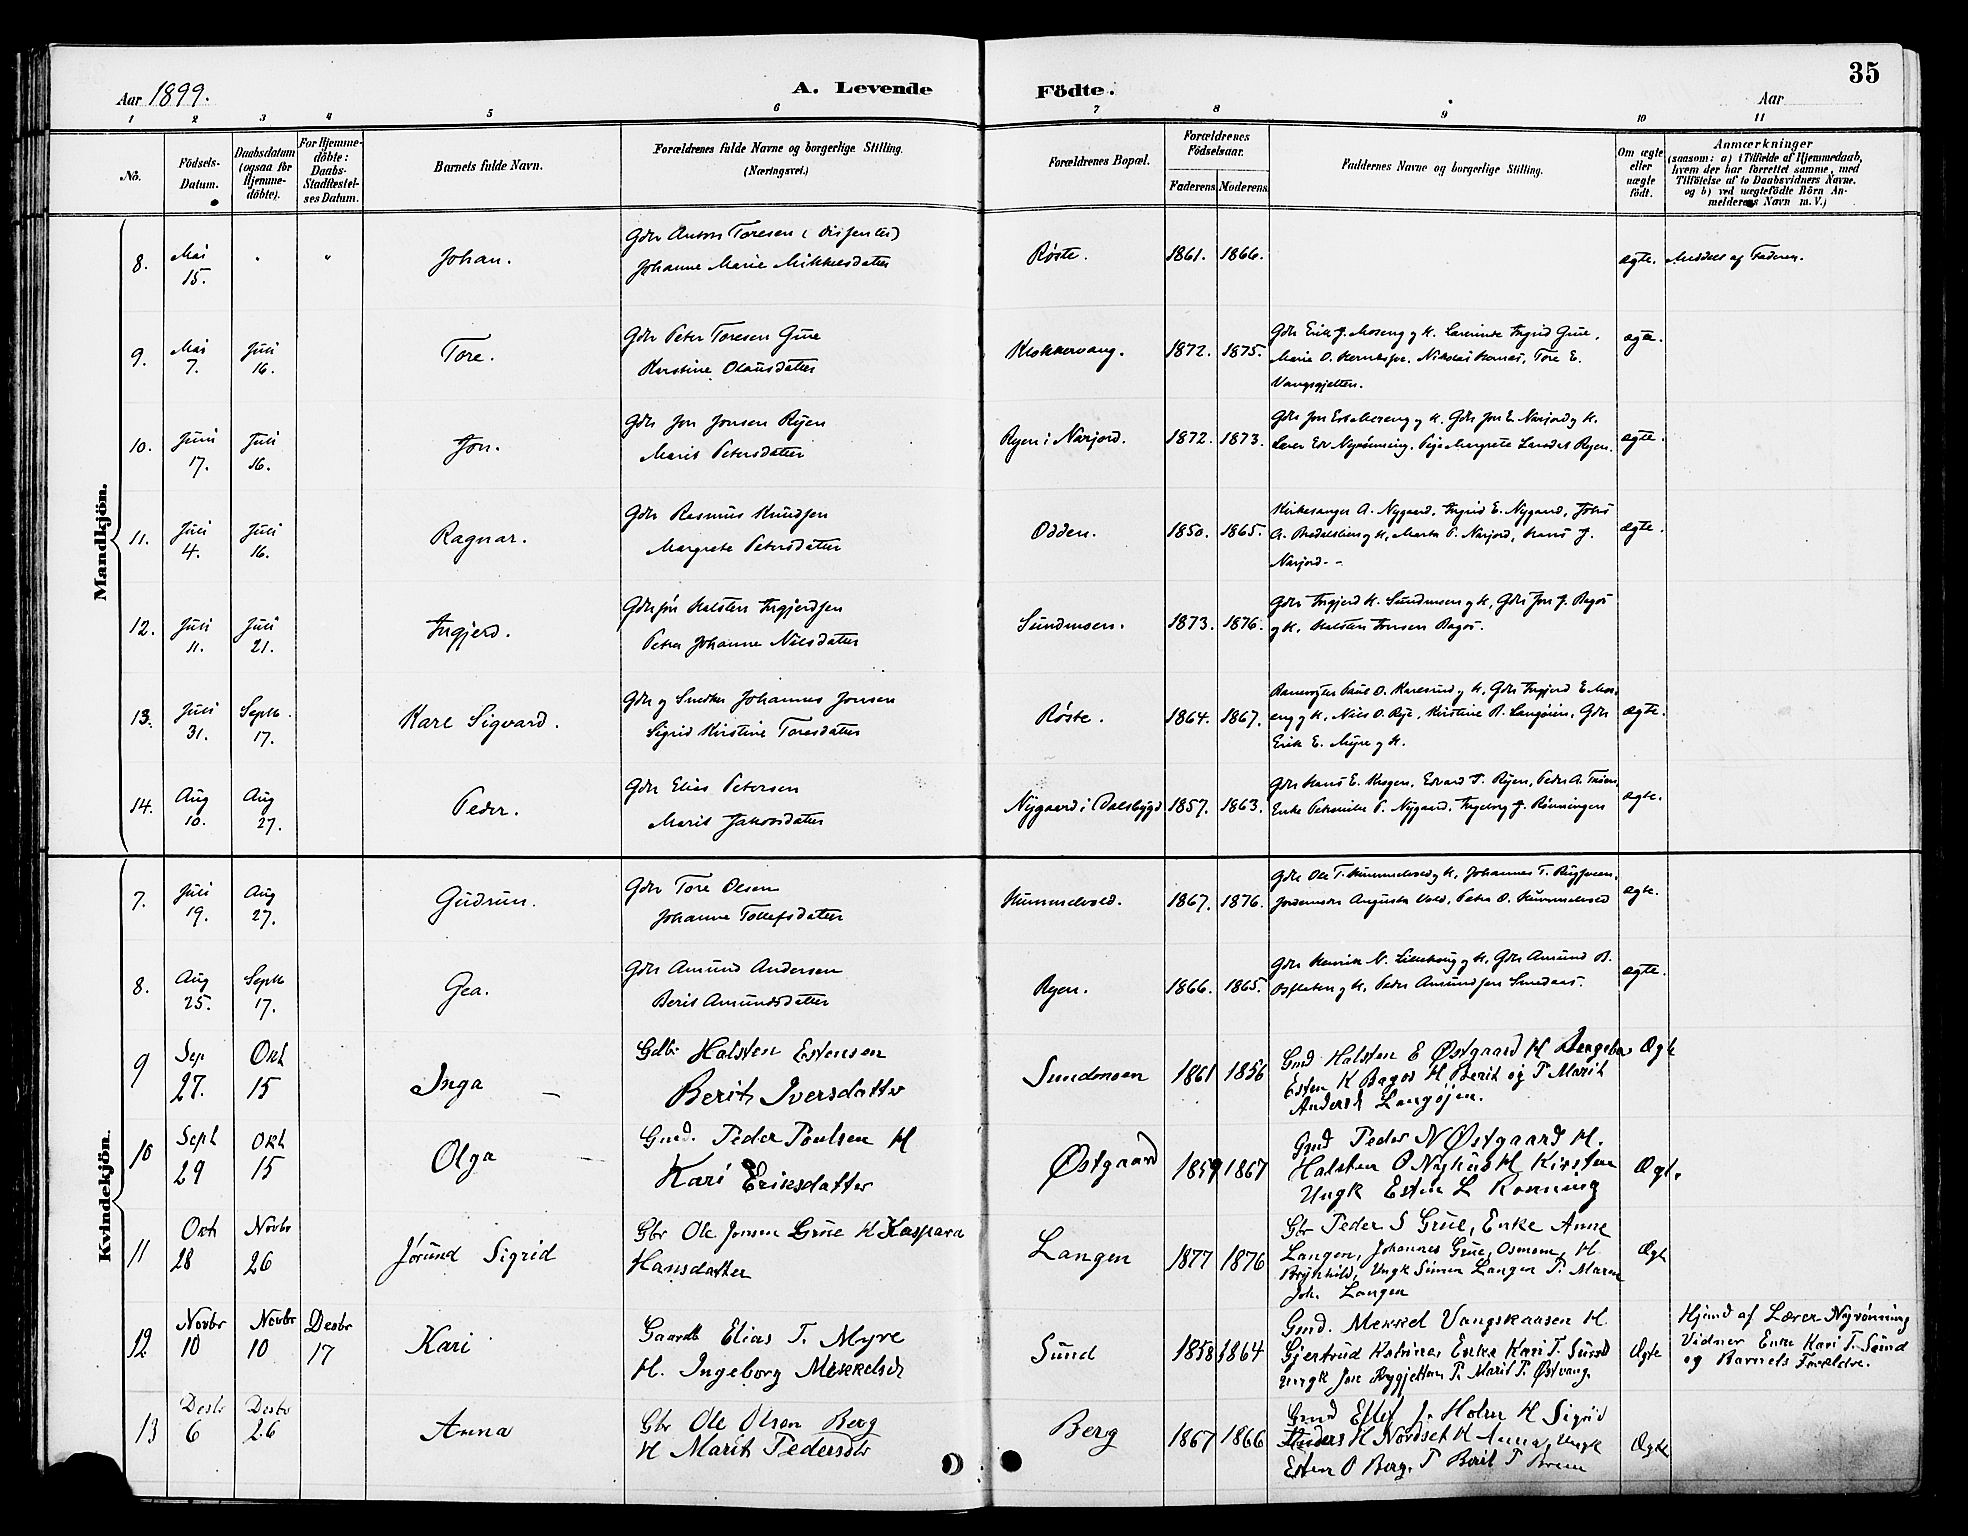 35
Aar 1899.
A. Levende Födte.
Aar
1 2 3 4 5 6 7 8 9 10 11
No.
Födsels-Datum.
Daabsdatum (ogsaa for Hjemmedöbte).
For Hjemmedöbte: Daabs-Stadfæstelses Datum.
Barnets fulde Navn.
Forældrenes fulde Navne og borgerlige Stilling. (Næringsvei.)
Forældrenes Bopæl.
Forældrenes Födselsaar.
Faderens. Moderens.
Faddernes Navne og borgerlige Stilling.
Om ægte eller uægte födt.
Anmærkninger
(saasom: a) i Tilfælde af Hjemmedaab, hvem der har forrettet samme, med Tilföielse af to Daabsvidners Navne, og b) ved uægtefödte Börn Anmelderens Navn m. V.)
Mandkjön.
8. Mai 15. " " Johan. Gdbr Anton Toresen (Dissenter)
Johanne Marie Mikkelsdatter
Røste. 1861. 1866. ægte. Meddelt af Faderen.
9. Mai 7. Juli 16. Tore. Gdbr Peter Toresen Grue
Kirstine Olausdatter
Klokkervang. 1872. 1875. Gdbr Erik J. Moseng og H. Lærerinde Ingrid Grue,
Marie O. Nikolai Tore E.
Vangsgjelten. ægte.
10. Juni 17. Juli 16. Jon. Gdbr Jon Jonsen Ryen
Marit Petersdatter
Ryen i Narjord. 1872. 1873. Gdbr Jon og H. Gdbr Jon E. Narjord og H.
Lærer Edv Nyrønning. Pige Margrete Ryen. ægte.
11. Juli 4. Juli 16. Ragnar. Gdbr Rasmus Knudsen
Margrete Petersdatter
Odden. 1850. 1865. Kirkesanger A. Nygaard, Ingrid E. Nygaard,
A. og H, Marta P. Narjord, Hans J.
Narjord. ægte.
12. Juli 11. Juli 21. Ingjerd. Gdbrsøn Halsten Ingjerdsen
Petra Johanne Nilsdatter
Sundmoen. 1873. 1876. Gdbr Ingjerd H. Sundmoen og H, Gdbr Jon J. Bagos
og H, Halsten Jonsen Bagos. ægte.
13. Juli 31. Septb. 17. Karl Sigvard. Gdbr og Snedker Johannes Jonsen
Sigrid Kirstine Toresdatter
Røste. 1864. 1867. Banevogter Paul O. og H, Gdbr Ingjerd E. Mos-
eng og H, Nils O. Rye, Kirstine R. Langøien, Gdbr
Erik E. Myre og H. ægte.
14. Aug 10. Aug 27. Peder. Gdbr Elias Petersen
Marit Jakobsdatter
Nygaard i Dalsbygd 1857. 1863. Gdbr Hans E. Krogen, Edvard T. Ryen, Peder A. Trøen,
Enke P. Nygaard, Ingeborg J. Rønningen ægte.
Kvindekjön.
7. Juli 19. Aug 27. Gudrun. Gdbr Tore Olsen
Johanne Tollefsdatter
Hummelvold. 1867. 1876. Gdbr Ole T. Hummelvold og H, Johannes T.
Jordemoder Augusta Vold, Petra O. Hummelvold ægte.
8. Aug 25. Septb 17. Gea. Gdbr Amund Andersen
Berit Amundsdatter
Ryen. 1866. 1865. Gdbr Henrik N. og H, Gdbr Amund B.
og H, Peder Amundsen Smedaas. ægte.
9 Sep 27. Okt 15 Inga Gdbr Halsten Estensen
Berit Iversdatter
Sundmoen 1861 1856 Gmd Halsten E Østgaard H Ingebor
Esten K Bagos H Berit og P Marit
Anders Langøjen. Ægte
10 Sept 29 Okt 15 Olga Gmd. Peder Poulsen H
Kari Eriksdatter
Østgaard 1859 1867 Gmd Peder N Østgaard H.
Halsten O Nyhus H Kirsten
Ungk Esten L Rønning Ægte.
11 Okt 28 Novbr 26 Jørund Sigrid Gbr Ole Jonsen Grue H Kaspara
Hansdatter
Langen 1877 1876 Gbr Peder S Grue, Enke Anne
Langen, Johannes Grue, Osmoen, H.
Brynhild, Ungk Simen Langen P. Maren
Joh. Langen Ægt
12 Novbr 10 Novbr 10 Desbr 17 Kari Gaardb Elias T. Myre
H. Ingeborg Mekkelsd
Sund 1858 1864 Gmd. Mekkel Vangskaasen H.
Gjertrud Katrina, Enke Kari T. Sund
Ungk Jon Ryggjetten P. Marit P. Østvang. Ægte
Hjmd af Lærer Nyrønning
Vidner Enke Kari T. Sund
og Barnets Forældre.
13 Desbr 6 Desbr 26 Anna Gbr Ole Olsen Berg
H Marit Pedersdtr
Berg 1867 1866 Gmd J. Holm H Sigrid
Anders H Nordset H Anna, Ungk
Esten O Berg, P Berit P Ægte